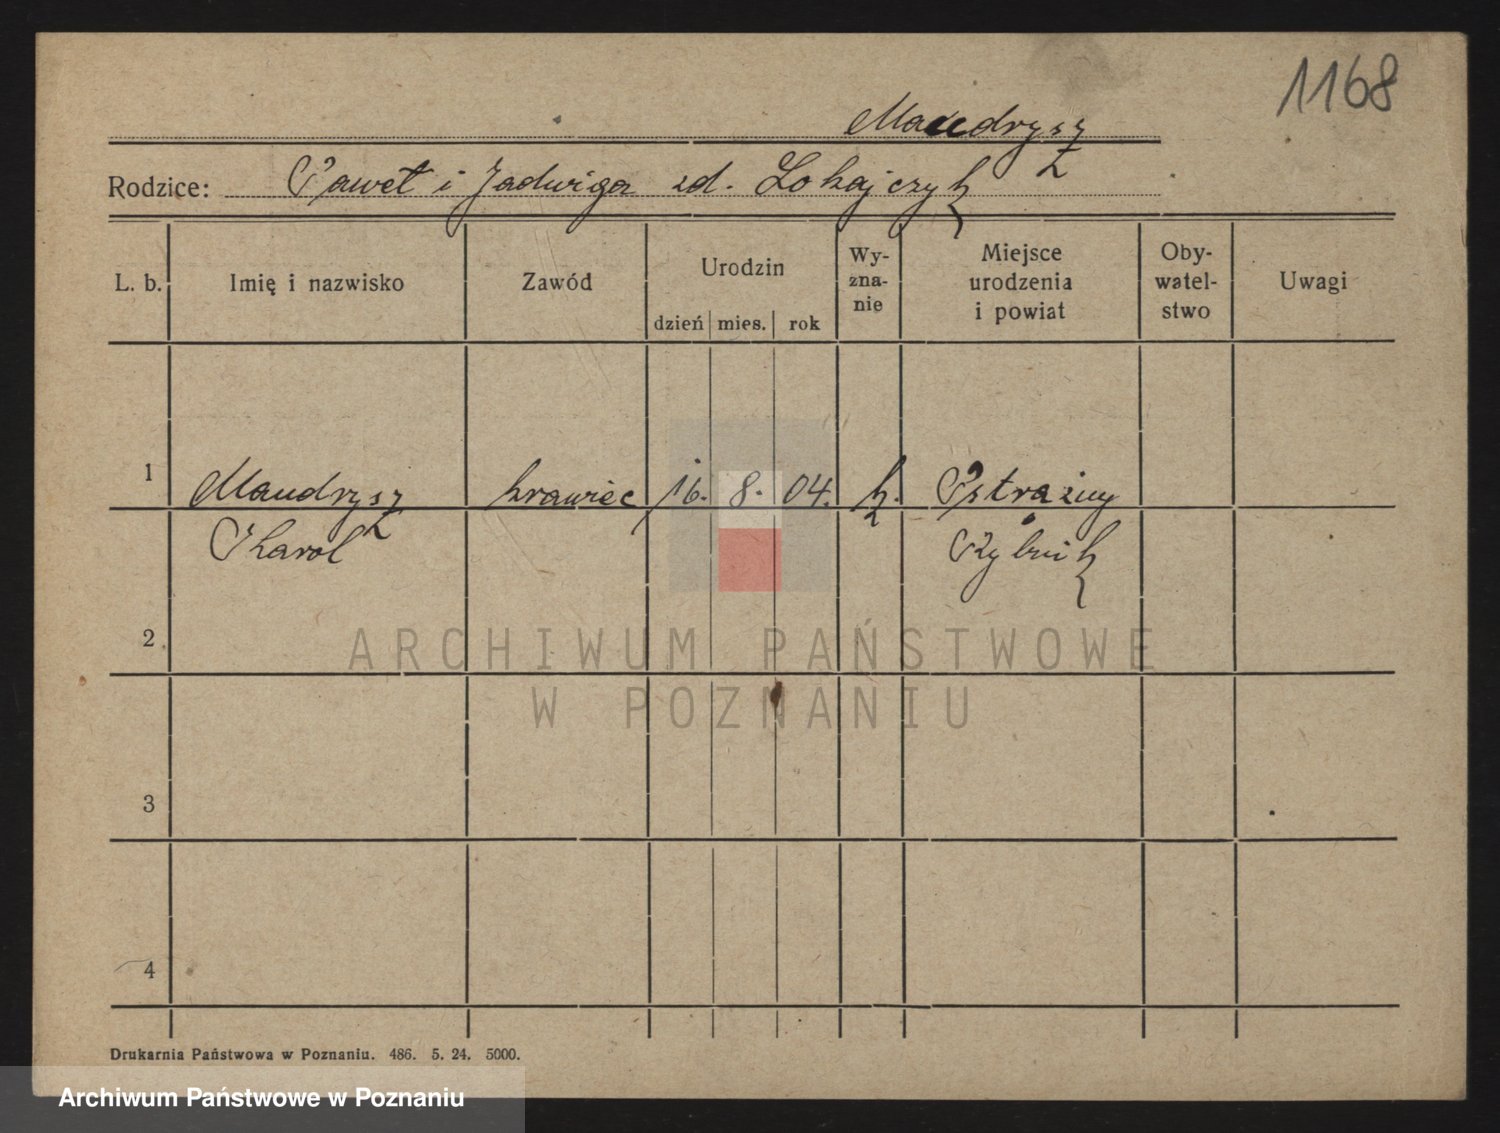 1168
Mandrysz
Rodzice: Paweł i Jadwiga zd. Lokajczyk
L. b. Imię i nazwisko Zawód Urodzin dzień mies. rok Wy-zna-nie Miejsce urodzenia i powiat Oby-watel-stwo Uwagi
1 Mandrysz krawiec 16. 8. 04. k. Pstrążny
Karol Rybnik
2
ARCHIWUM PAŃSTWOWE
W POZNANIU
3
4
Drukarnia Państwowa w Poznaniu. 486. 5. 24. 5000.
Archiwum Państwowe w Poznaniu